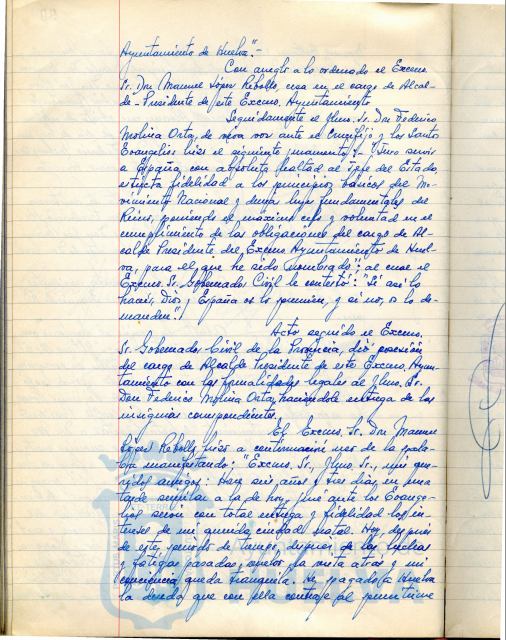 Ayuntamiento de Huelva".-
Con arreglo a lo ordenado el Excmo.
Sr. Don Manuel López Rebollo, cesa en el cargo de Alcal-
de-Presidente de este Excmo. Ayuntamiento.
Seguidamente el Ilmo. Sr. Don Federico
Molina Orta, de viva voz ante el Crucifijo y los Santos
Evangelios hizo el siguiente juramento: "Juro servir
a España con absoluta lealtad al Jefe del Estado,
estricta fidelidad a los principios básicos del Mo-
vimiento Nacional y demás leyes fundamentales del
Reino, poniendo el máximo celo y voluntad en el
cumplimiento de las obligaciones del cargo de Al-
calde Presidente del Excmo. Ayuntamiento de Huel-
va, para el que he sido nombrado"; al cual el
Excmo. Sr. Gobernador Civil le contestó: "Si así lo
haceis, Dios y España os lo premien, y si no, os lo de-
manden".
Acto seguido el Excmo.
Sr. Gobernador Civil de la Provincia, dió posesión
del cargo de Alcalde Presidente de este Excmo. Ayun-
tamiento con las formalidades legales al Ilmo. Sr.
Don Federico Molina Orta, haciéndole entrega de las
insignias correspondientes.
El Excmo. Sr. Don Manuel
López Rebollo hizo a continuación uso de la pala-
bra manifestando: "Excmo. Sr., Ilmo. Sr., mis que-
ridos amigos: Hace seis años y tres días, en una
tarde similar a la de hoy, juré ante los Evange-
lios servir con total entrega y fidelidad los in-
tereses de mi querida ciudad natal. Hoy, después
de este periodo de tiempo, después de las luchas
y fatigas pasadas, vuelvo la vista atrás y mi
conciencia queda tranquila. He pagado a Huelva
la deuda que con ella contraje al permitirme